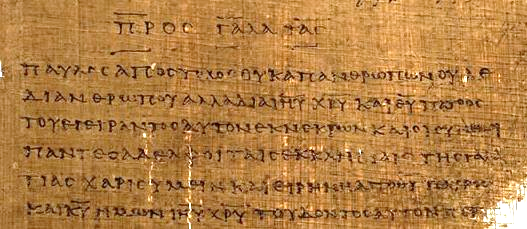 ΠΡΟϹ ΓΑΛΑΤΑϹ
ΠΑΥΛΟϹ ΑΠΟϹΤΟΛΟϹ ΟΥΚ ΑΠ ΑΝΘΡΩΠΩΝ ΟΥΔΕ
ΔΙ ΑΝΘΡΩΠΟΥ ΑΛΛΑ ΔΙΑ ΙΗΥ ΧΡΥ ΚΑΙ ΘΥ ΠΑΤΡΟϹ
ΤΟΥ ΕΓΕΙΡΑΝΤΟϹ ΑΥΤΟΝ ΕΚ ΝΕΚΡΩΝ ΚΑΙ ΟΙ ϹΥΝ
ΠΑΝΤΕϹ ΑΔΕΛΦΟΙ ΤΑΙϹ ΕΚΚΛΗϹΙΑΙϹ ΤΗϹ ΓΑΛΑ
ΤΙΑϹ ΧΑΡΙϹ ΥΜΕΙΝ ΚΑΙ ΕΙΡΗΝΗ ΑΠΟ ΘΥ
ΚΑΙ ΚΥ ΗΜΩΝ ΙΗΥ ΧΡΥ ΤΟΥ ΔΟΝΤΟϹ ΑΥΤΟΝ